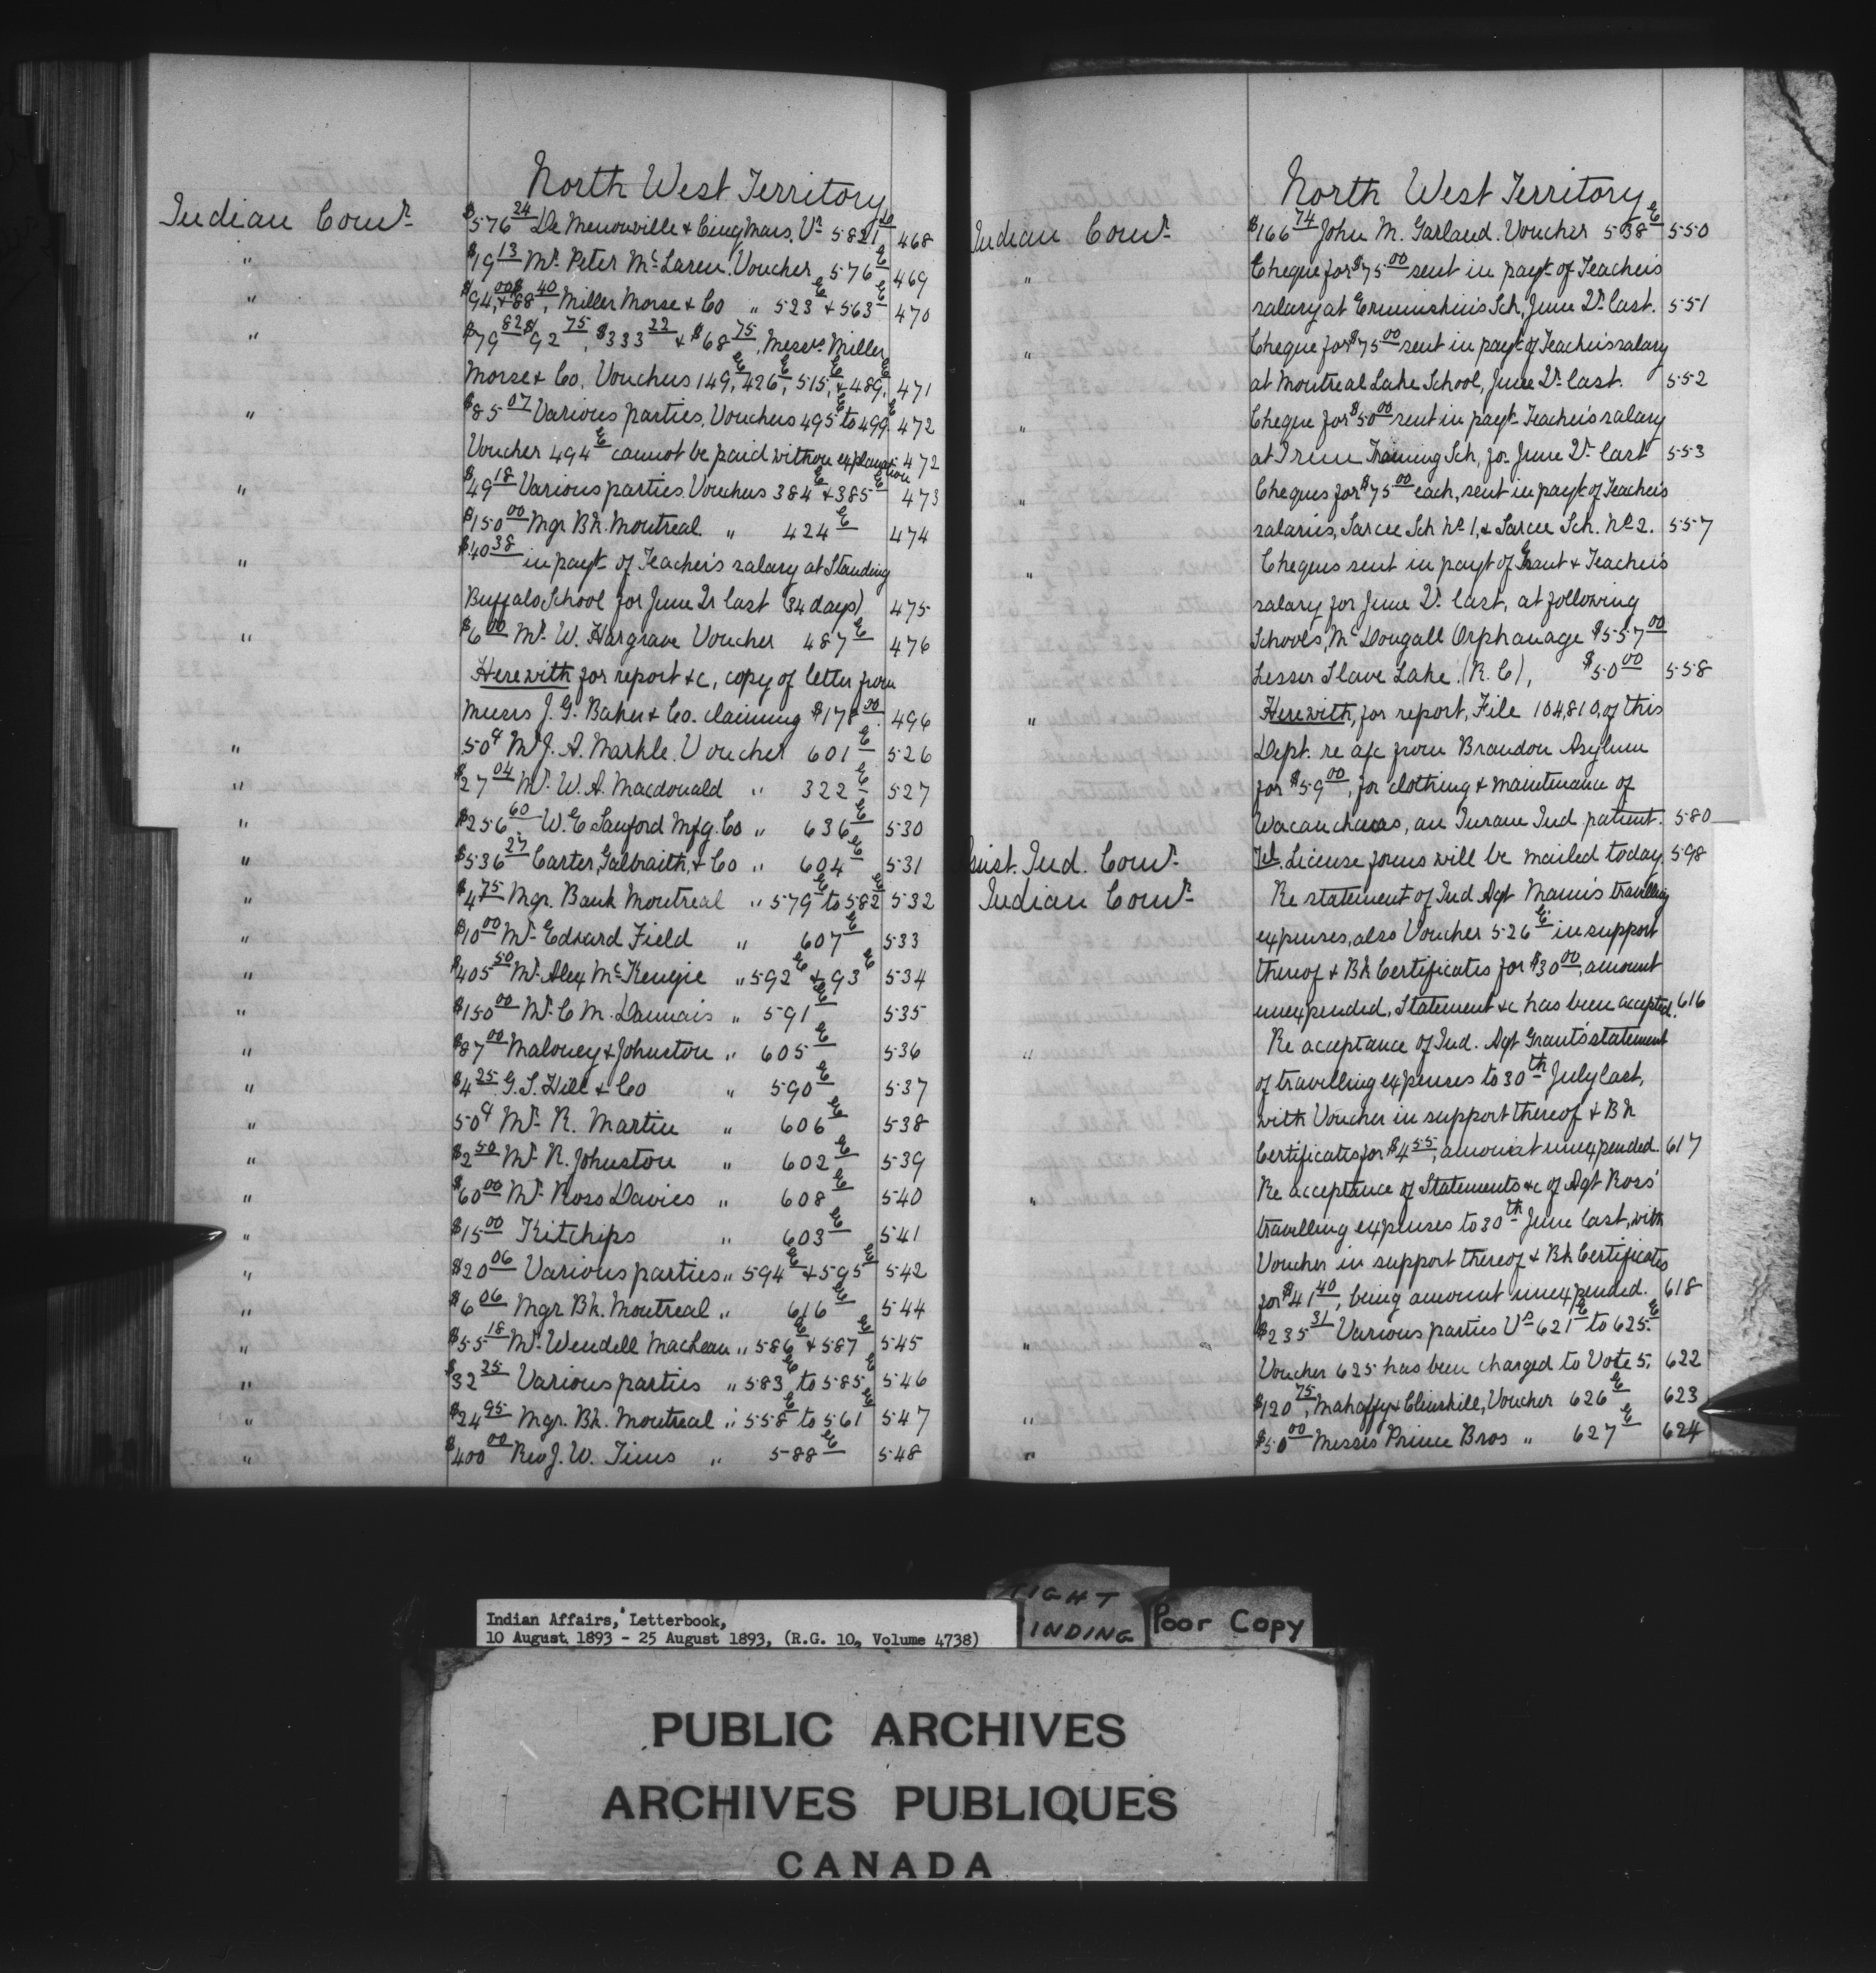 North West Territory
Indian Comr. $576.24 De Menonville & Cinqmars, Vr 5821 20 468
" $19.13 Mr. Peter McLaren. Voucher 576 E 469
" $94.00 & $88.40, Miller Morse & Co " 523 E & 563 E 470
" $79.82 $92.75, $333.22 & $68.75, Messrs. Miller
Morse & Co. Vouchers 149 E, 426 E, 515 E, & 489 E, 471
" $85.07 Various parties, Vouchers 495 E to 499 E. 472
Voucher 494 E cannot be paid without explanation 472
" $49.18 Various parties. Vouchers 384 E & 385 E 473
" $150.00 Mgr. Bk. Montreal " 424 E 474
" $40.38 in payt. of Teacher's salary at Standing
Buffalo School for June Qr last (34 days) 475
" $6.00 Mr. W. Hargrave Voucher 487 E 476
Herewith for report &c, copy of letter from
Messrs J. G. Baker & Co. claiming $178.00. 496
" 50¢ Mr J. A. Markle. Voucher 601 E 526
" $27.04 Mr. W. A. Macdonald " 322 E 527
" $256.60. W. E. Sanford Mfg. Co " 636 E 530
" $536.27 Carter, Galbraith, & Co " 604 E 531
" $4.75 Mgr. Bank Montreal " 579 E to 582 E 532
" $10.00 Mr. Edward Field " 607 E 533
" $405.50 Mr. Alex McKenzie " 592 E & 93 E 534
" $150.00 Mr. C. M. Daunais " 591 E 535
" $87.00 Maloney & Johnston " 605 E 536
" $4.25 G. S. Hill & Co " 590 E 537
" 50¢ Mr. R. Martin " 606 E 538
" $2.50 Mr. R. Johnston " 602 E 539
" $60.00 Mr. Ross Davies " 608 E 540
" $15.00 Kitchips " 603 E 541
" $20.06 Various parties " 594 E & 595 E 542
" $6.06 Mgr Bk. Montreal " 616 E 544
" $55.18 Mr. Wendell Maclean " 586 E & 587 E 545
" $32.25 Various parties " 583 E to 585 E 546
" $24.95 Mgr. Bk. Montreal " 558 E to 561 E 547
" $400.00 Rev J. W. Tims " 588 E 548
North West Territory
Indian Comr. $166.74 John M. Garland. Voucher 538 E 550
" Cheque for $75.00 sent in payt. of Teacher's
salary at Ermineskin's Sch, June Qr. last. 551
" Cheque for $75.00 sent in payt. of Teacher's salary
at Montreal Lake School, June Qr. last. 552
" Cheque for $50.00 sent in payt. Teacher's salary
at Training Sch, for June Qr. last 553
" Cheques for $75.00 each, sent in payt. of Teacher's
salaries, Sarcee Sch No. 1, & Sarcee Sch. No. 2. 557
" Cheques sent in payt of Grant & Teacher's
salary for June Qr. last, at following
Schools, McDougall Orphanage $557.00
Lesser Slave Lake (R. C), $50.00 558
" Herewith, for report, File 104,810, of this
Dept. re a/c from Brandon Asylum
for $59.00, for clothing & maintenance of
an Ind patient. 580
ssist. Ind. Comr. Tel. License forms will be mailed today 598
Indian Comr. Re statement of Ind Agt Mann's travelling
expenses, also Voucher 526 E in support
thereof & Bk Certificates for $30.00, amount
unexpended, Statement &c has been accepted. 616
" Re acceptance of Ind. Agt Grant's statement
of travelling expenses to 30th July last,
with Voucher in support thereof & Bk
Certificates for $4.55, amount unexpended. 617
" Re acceptance of Statements &c of Agt Ross'
travelling expenses to 30th June last, with
Voucher in support thereof & Bk Certificates
for $41.40, being amount unexpended. 618
" $235.31 Various parties Vrs 621 E to 625 E.
Voucher 625 has been charged to Vote 5. 622
" $120.75, Mahaffy & Clinskill, Voucher 626 E 623
" $50.00 Messrs Prince Bros " 627 E 624
TIGHT
INDING
Poor Copy
Indian Affairs, Letterbook,
10 August 1893 - 25 August 1893, (R.G. 10, Volume 4738)
PUBLIC ARCHIVES
ARCHIVES PUBLIQUES
CANADA